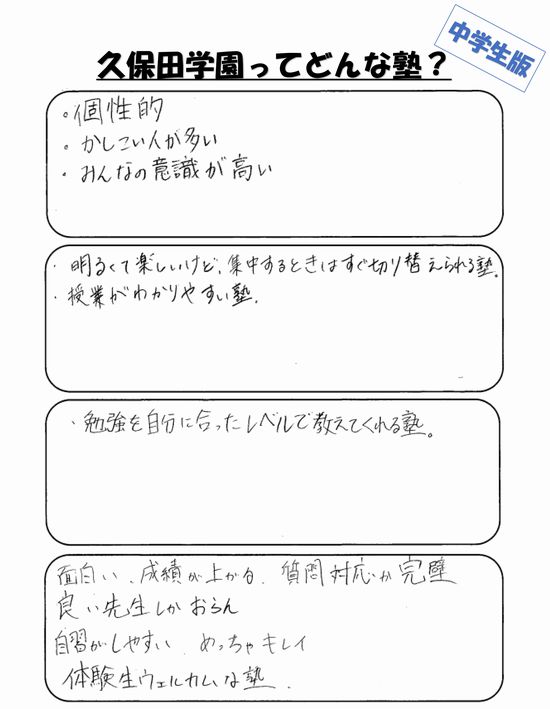 中学生版
久保田学園ってどんな塾？
・個性的
・かしこい人が多い
・みんなの意識が高い
・明るくて楽しいけど、集中するときはすぐ切り替えられる塾。
・授業がわかりやすい塾.
・勉強を自分に合ったレベルで教えてくれる塾。
面白い、成績が上がる、質問対応が完璧
良い先生しかおらん
自習がしやすい めっちゃキレイ
体験生ウェルカムな塾.